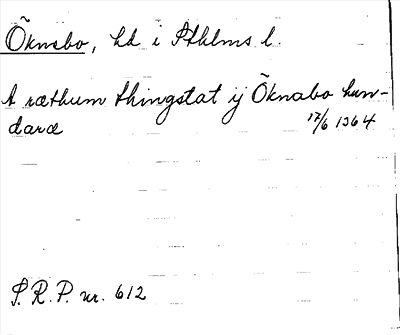 Õknabo, hd i Sthlms l.
A ræthum thingstat ij Õknabo hun-
daræ 17/6 1364
S.R.P. nr. 612